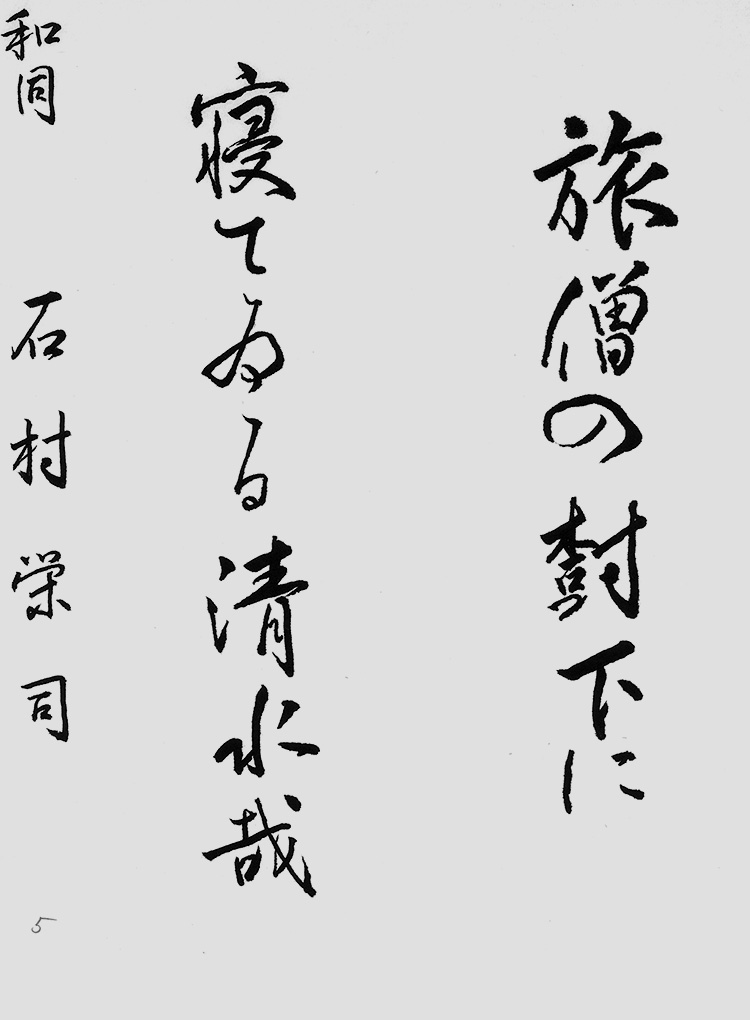 旅僧の樹下に
寝てゐる清水哉
和同 石村栄司
5